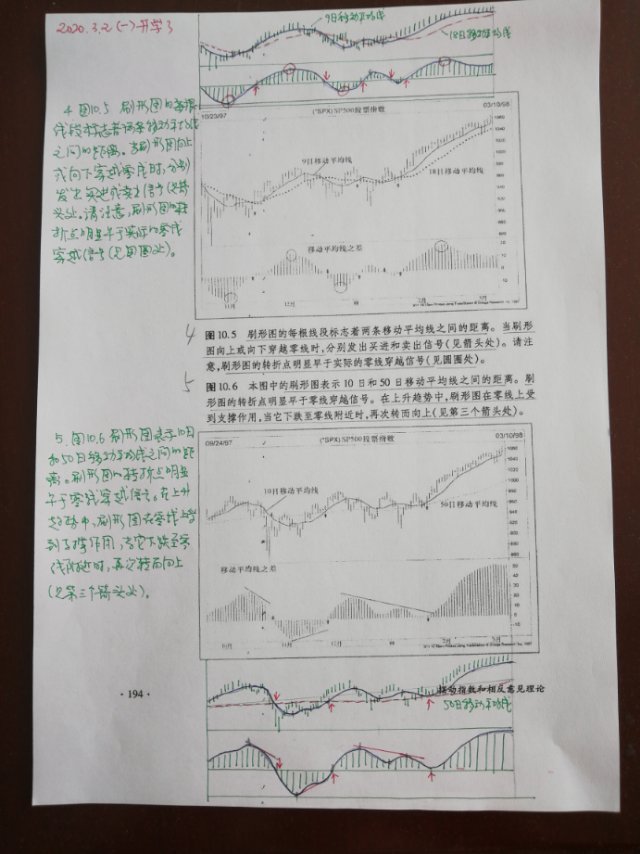 2020.3.2(一)开学了
9日移动平均线
18日移动平均线
4.图10.5 刷形图的每根
线段标志着两条移动平均线
之间的距离。当刷形图向上
或向下穿越零线时,分别
发出买进或卖出信号(见箭
头处。请注意,刷形图的转
折点明显早于实际的零线
穿越信号(见圆圈处)。
10/23/97
(*SPX)SP500股票指数
03/10/98
9日移动平均线
18日移动平均线
移动平均线之差
11月
12月
2月
3月
4
图10.5 刷形图的每根线段标志着两条移动平均线之间的距离。当刷形
图向上或向下穿越零线时,分别发出买进和卖出信号(见箭头处)。请注
意,刷形图的转折点明显早于实际的零线穿越信号(见圆圈处)。
5
图10.6 本图中的刷形图表示10日和50日移动平均线之间的距离。刷
形图的转折点明显早于零线穿越信号。在上升趋势中,刷形图在零线上受
到支撑作用,当它下跌至零线附近时,再次转而向上(见第三个箭头处)。
5.图10.6刷形图表示10日
和50日移动平均线之间的距
离。刷形图的转折点明显
早于零线穿越信号。在上升
趋势中,刷形图在零线上受
到支撑作用,当它下跌至零
线附近时,再次转而向上
(见第三个箭头处)。
09/24/97
(*SPX)SP500股票指数
03/10/98
10日移动平均线
50日移动平均线
移动平均线之差
10月
11月
12月
2月
3月
·194·
摆动指数和相反意见理论
50日移动平均线